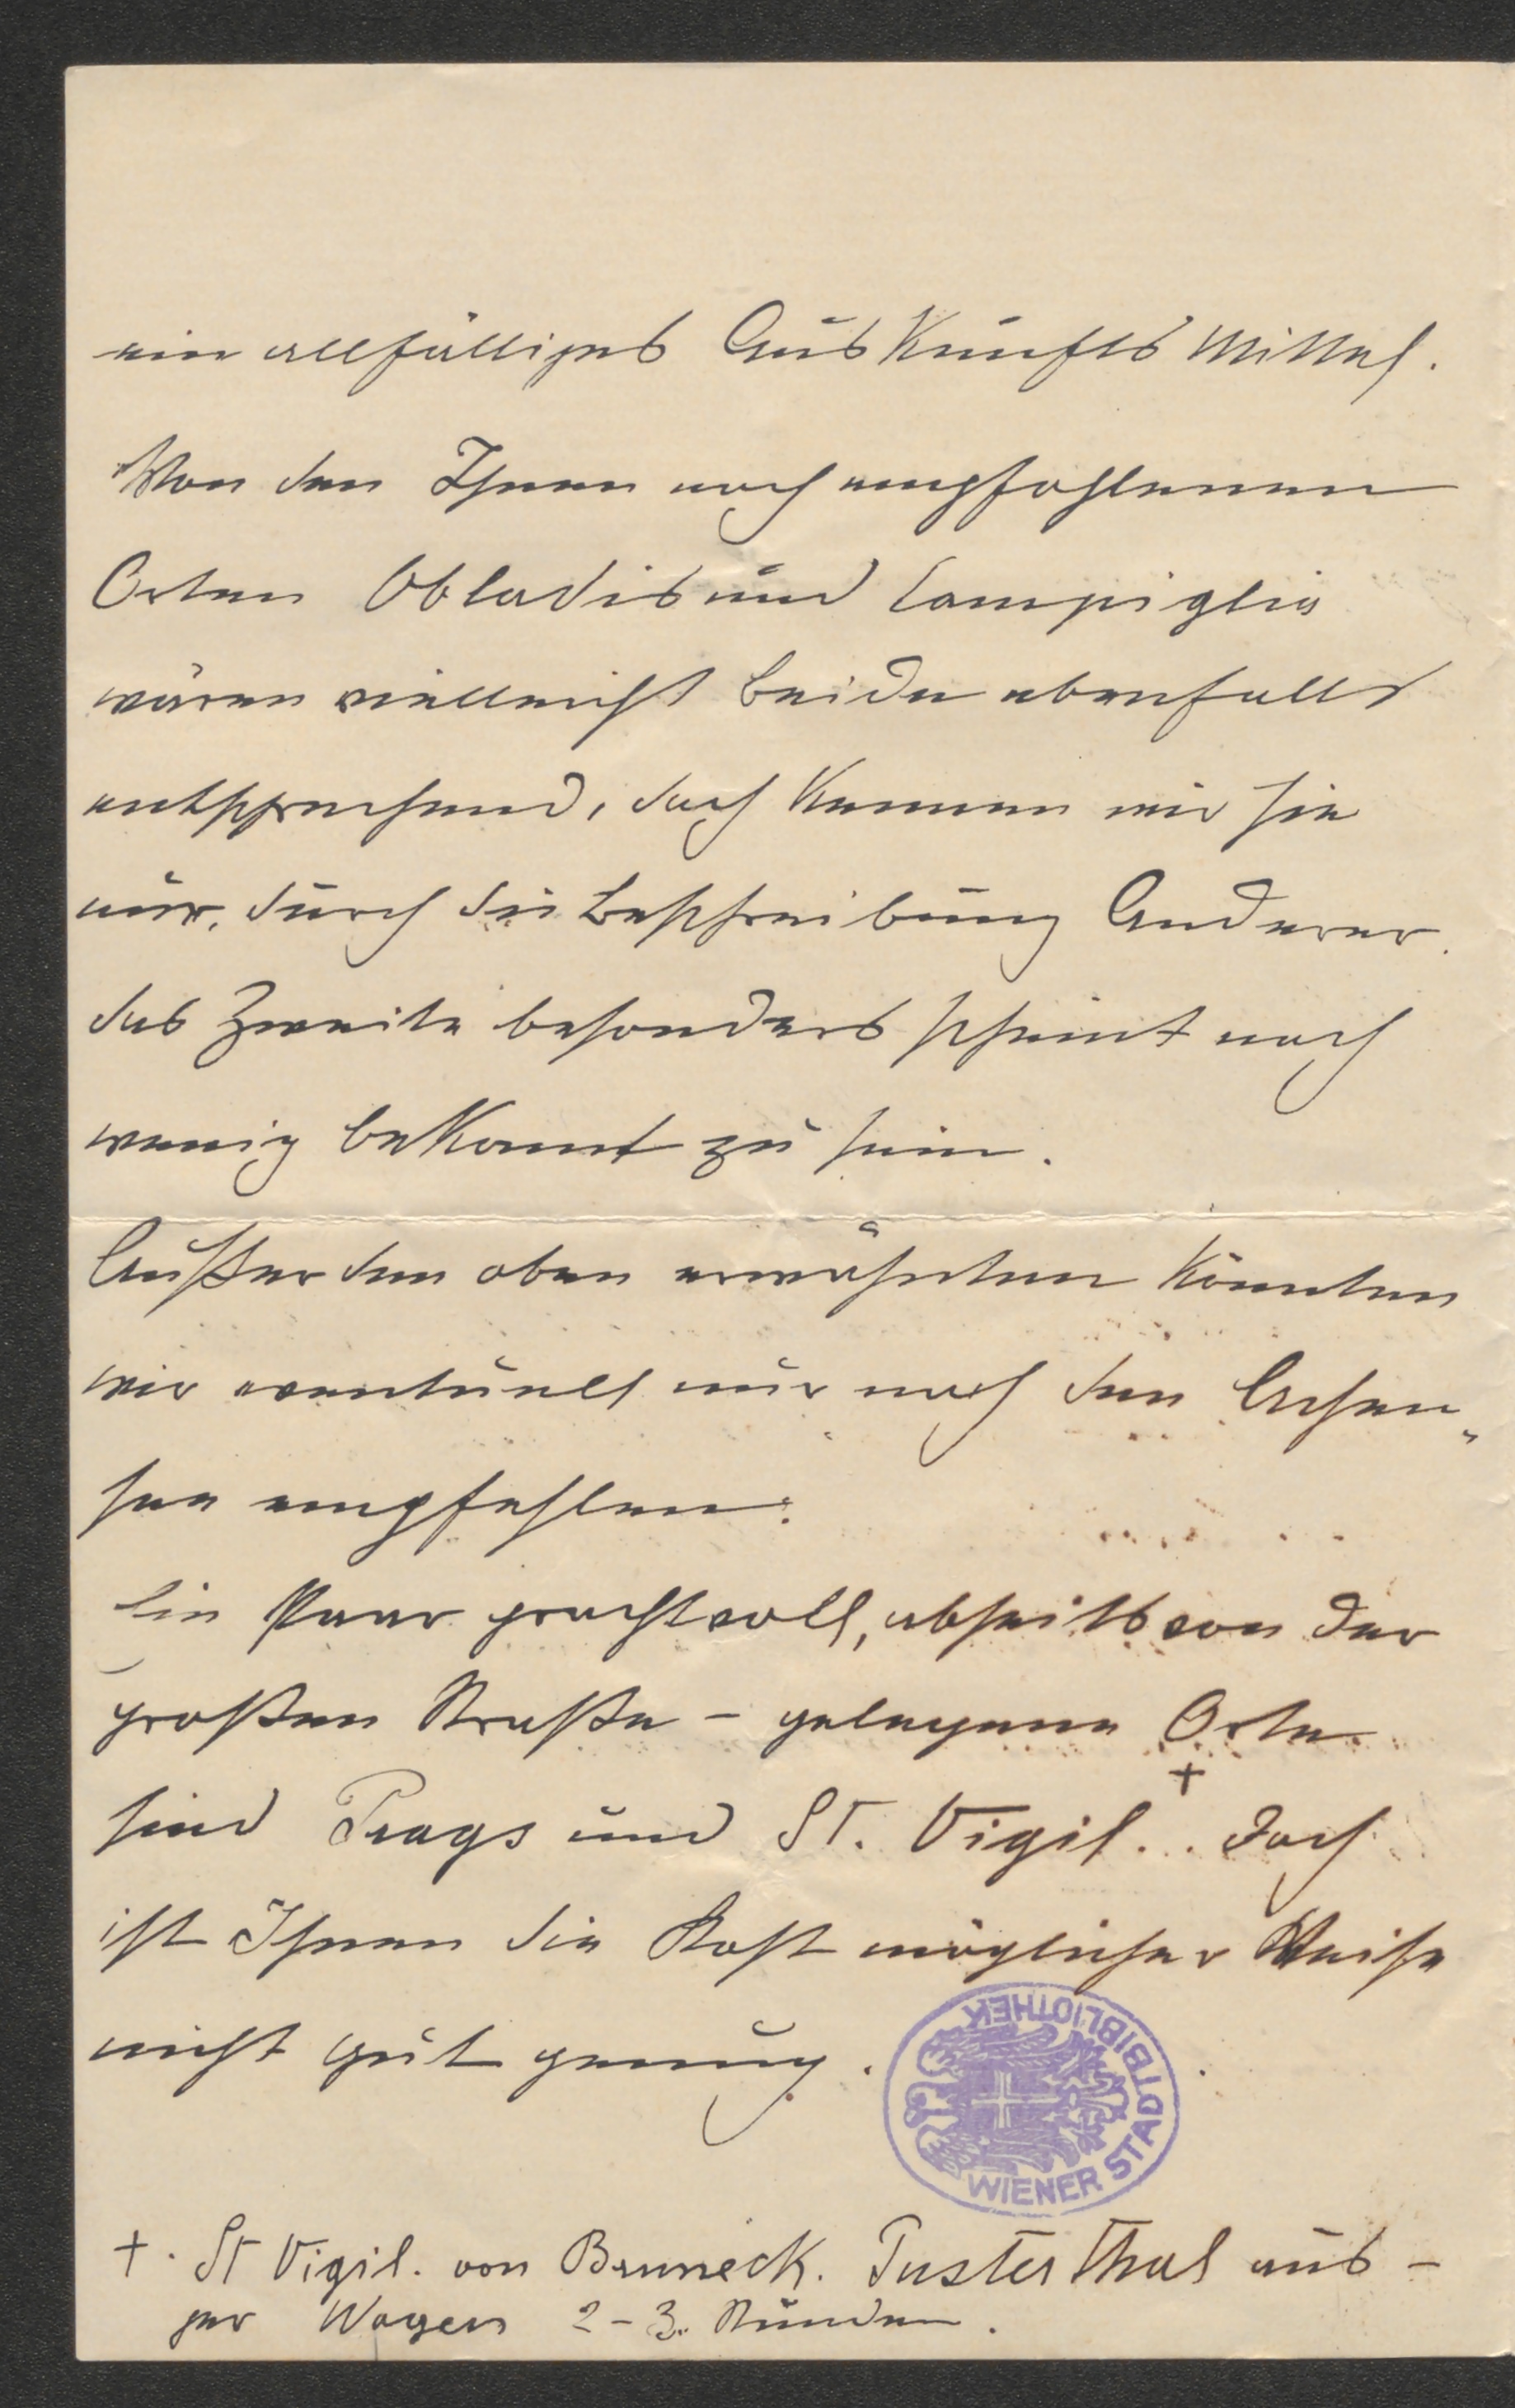 ein allfälliges Auskunfts Mittel.
Von den Ihnen noch empfohlenen
Orten Obladis und Campiglio
wären vielleicht beide ebenfalls
entsprechend, doch kennen wir sie
nur, durch die Beschreibung Anderer.
das Zweite besonders scheint noch
wenig bekannt zu sein.
Außer den oben erwähnten könnten
wir eventuell nur noch den Achen„
see empfehlen.
Ein Paar prachtvoll, abseits von der
großen Straße – gelegene Orte
sind Prags und St. Vigil. + Doch
ist Ihnen die Kost möglicher Weise
nicht gut genug.
WIENER STADTBIBLIOTHEK
+. St Vigil. von Bruneck. Pusterthal aus –
per Wagen 2–3. Stunden.